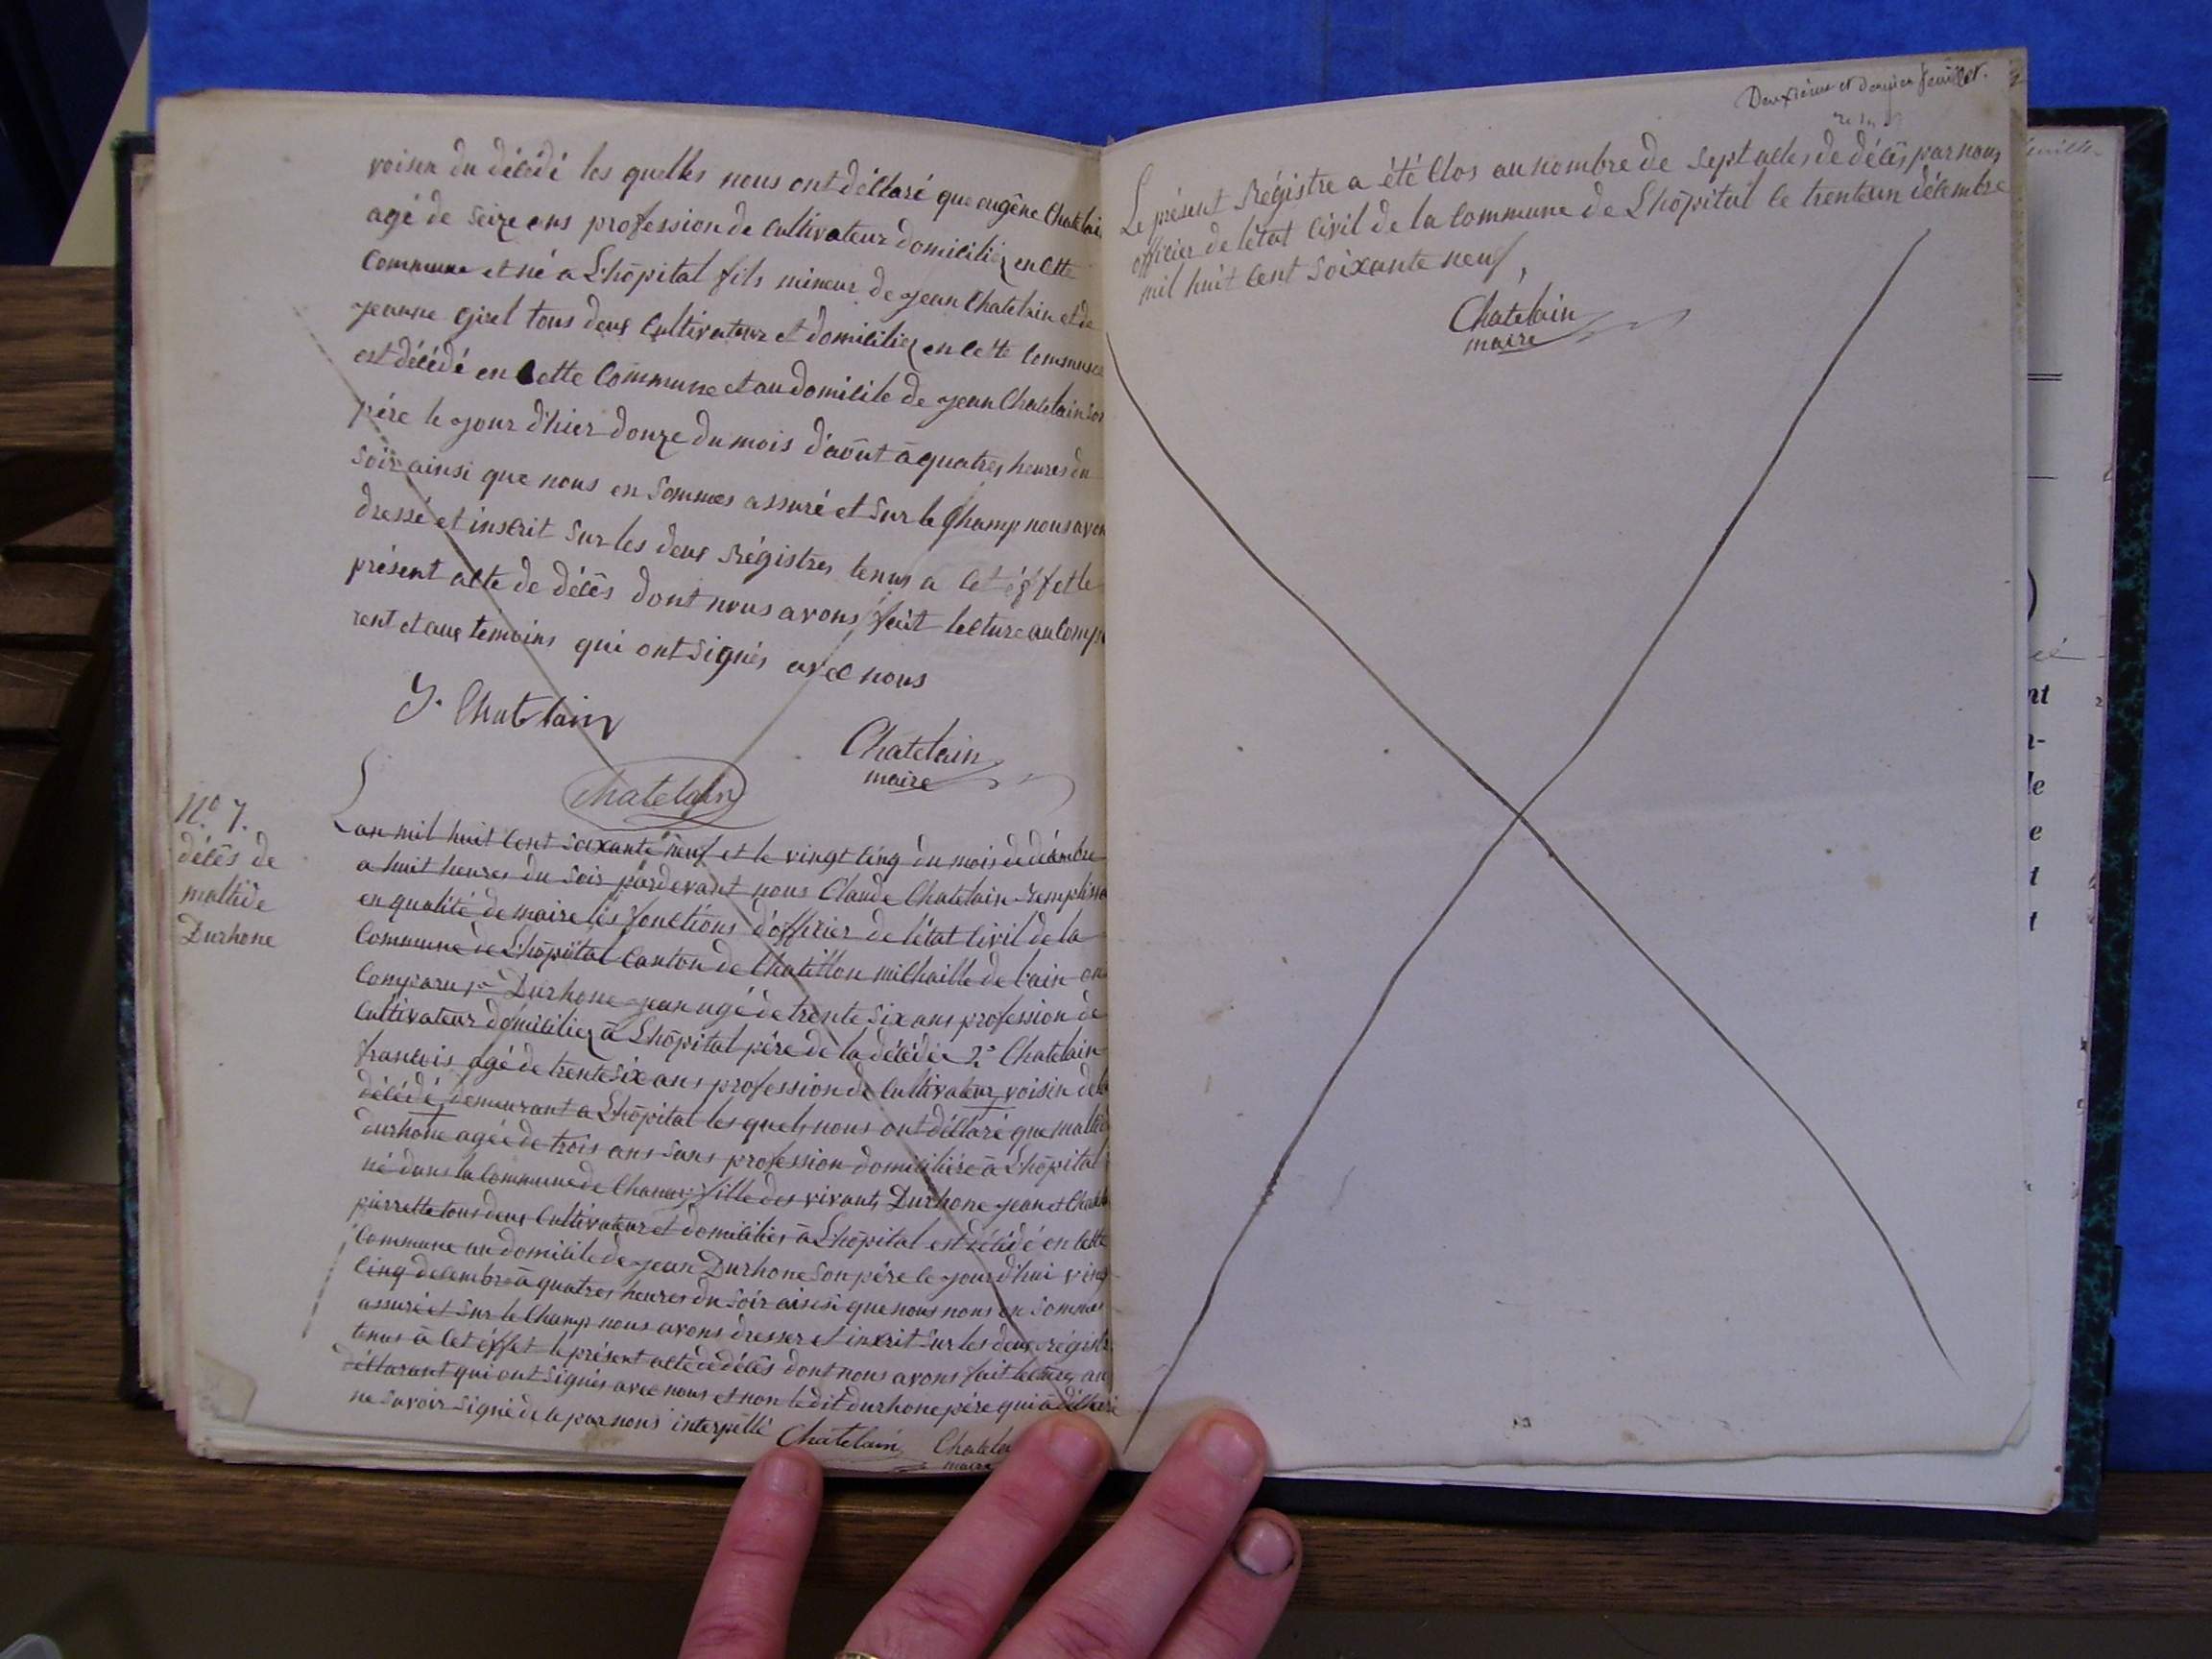 voisin du décédé les quelles nous ont déclaré que eugêne Chatelain
agé de Seize ans profession de Cultivateur domiciliez en Cette
Commune et né a L'hôpital fils mineur de jean Chatelain et de
jeanne Girel tous deux Cultivateur et domiciliez en Cette Commune
est décédé en Cette Commune et au domicile de jean Chatelain Son
pére le jour d'hier douze du mois d'août à quatres heures du
Soir ainsi que nous en Sommes assuré et Sur le Champ nous avons
dressé et inscrit Sur les deux Régistres tenus a Cet éffet le
présent acte de décês dont nous avons fait lecture au Comp
rent et aux temoins qui ont Signés avec nous
J. Chatelain
Chatelain
maire
Chatelain
N.º 7.
décês de
maltide
Durhone
L'an mil huit Cent Soixante neuf et le vingt Cinq du mois de décembre
a huit heures du Soir pardevant nous Claude Chatelain Remplissa
en qualité de maire les fonctions d'officier de l'état Civil de la
Commune de L'hôpital Canton de Chatillon michaille de l'ain on
Comparu 1º Durhone jean agé de trente Six ans profession de
Cultivateur domiciliez à L'hôpital pére de la décédée 2º Chatelain
francois agé de trente Six ans profession de Cultivateur voisin de la
décédé demeurant a L'hôpital les quels nous ont déclaré que maltide
durhone agée de trois ans Sans profession domiciliée à L'hôpital
né dans la Commune de Chanay fille des vivants Durhone jean et Chatel
pierrette tous deux Cultivateur et domiciliés à L'hôpital est décédé en Cette
Commune au domicile de jean Durhone Son pére le jour d'hui vingt
Cinq decembre à quatres heures du Soir ainsi que nous nous en Sommes
assuré et Sur le Champ nous avons dresser et inscrit Sur les deux régistr
tenus à Cet éffet le présent acte de décês dont nous avons fait lecture au
déclarant qui ont Signés avec nous et non le dit durhone pére qui à déclaré
ne Savoir Signé de le par nous interpéllé
Chatelain
Chatelain
maire
Deuxième et dernier feuillet.
Le présent Régistre a été Clos au nombre de Sept actes de décês par nous
officier de l'état Civil de la Commune de L'hôpital le trente un décembre
mil huit Cent Soixante neuf,
Chatelain
maire